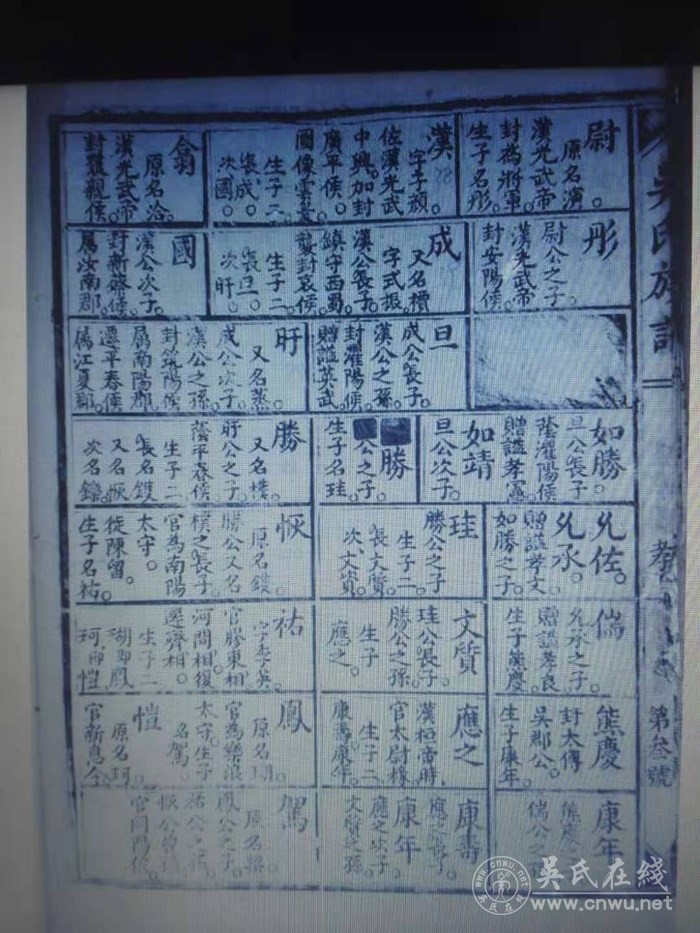 吳氏族譜
第叁號
尉
原名濱
漢光武帝
封為將軍
生子名彤
漢
字子顏
佐漢光武
中興加封
廣平侯
圖像雲臺
生子二
長成
次國
翕
原名洽
漢光武帝
封褒親侯
彤
尉公之子
漢光武帝
封安陽侯
成
又名
字式振
漢公長子
鎮守西蜀
襲封哀侯
生子二
長旦
次盱
國
漢公次子
封新蔡侯
屬汝南郡
旦
成公長子
漢公之孫
封灌陽侯
贈諡英武
盱
又名
成公次子
漢公之孫
封筑陽侯
屬南陽郡
遷平春侯
屬江夏郡
如勝
旦公長子
蔭灌陽侯
贈諡孝憲
如靖
旦公次子
勝
公之子
生子名珪
勝
又名樸
盱公之子
蔭平春侯
生子二
長名鑊
又名恢
次名
允佐
允承
贈諡孝文
如勝之子
珪
勝公之子
生子二
長文質
次文資
恢
原名鑊
勝公又名
樸之長子
官為南陽
太守
徙陳留
生子名祐
倘
允承之子
贈諡孝良
生子熊慶
文質
珪公長子
勝公之孫
生子
應之
祐
字季英
官膠東相
河間相復
遷齊相
生子二
瑚即鳳
珂即愷
熊慶
封太傅
吳郡公
生子康年
應之
漢桓帝時
官太尉掾
生子二
康壽康年
鳳
原名瑚
官為樂浪
太守生子
名駕
愷
原名珂
官新息令
康年
熊慶
倘公之
康壽
應之長子
康年
應之次子
文質之孫
駕
原名
鳳公之子
祐公之孫
恢公曾孫
吳氏在綫
www.cnwu.net